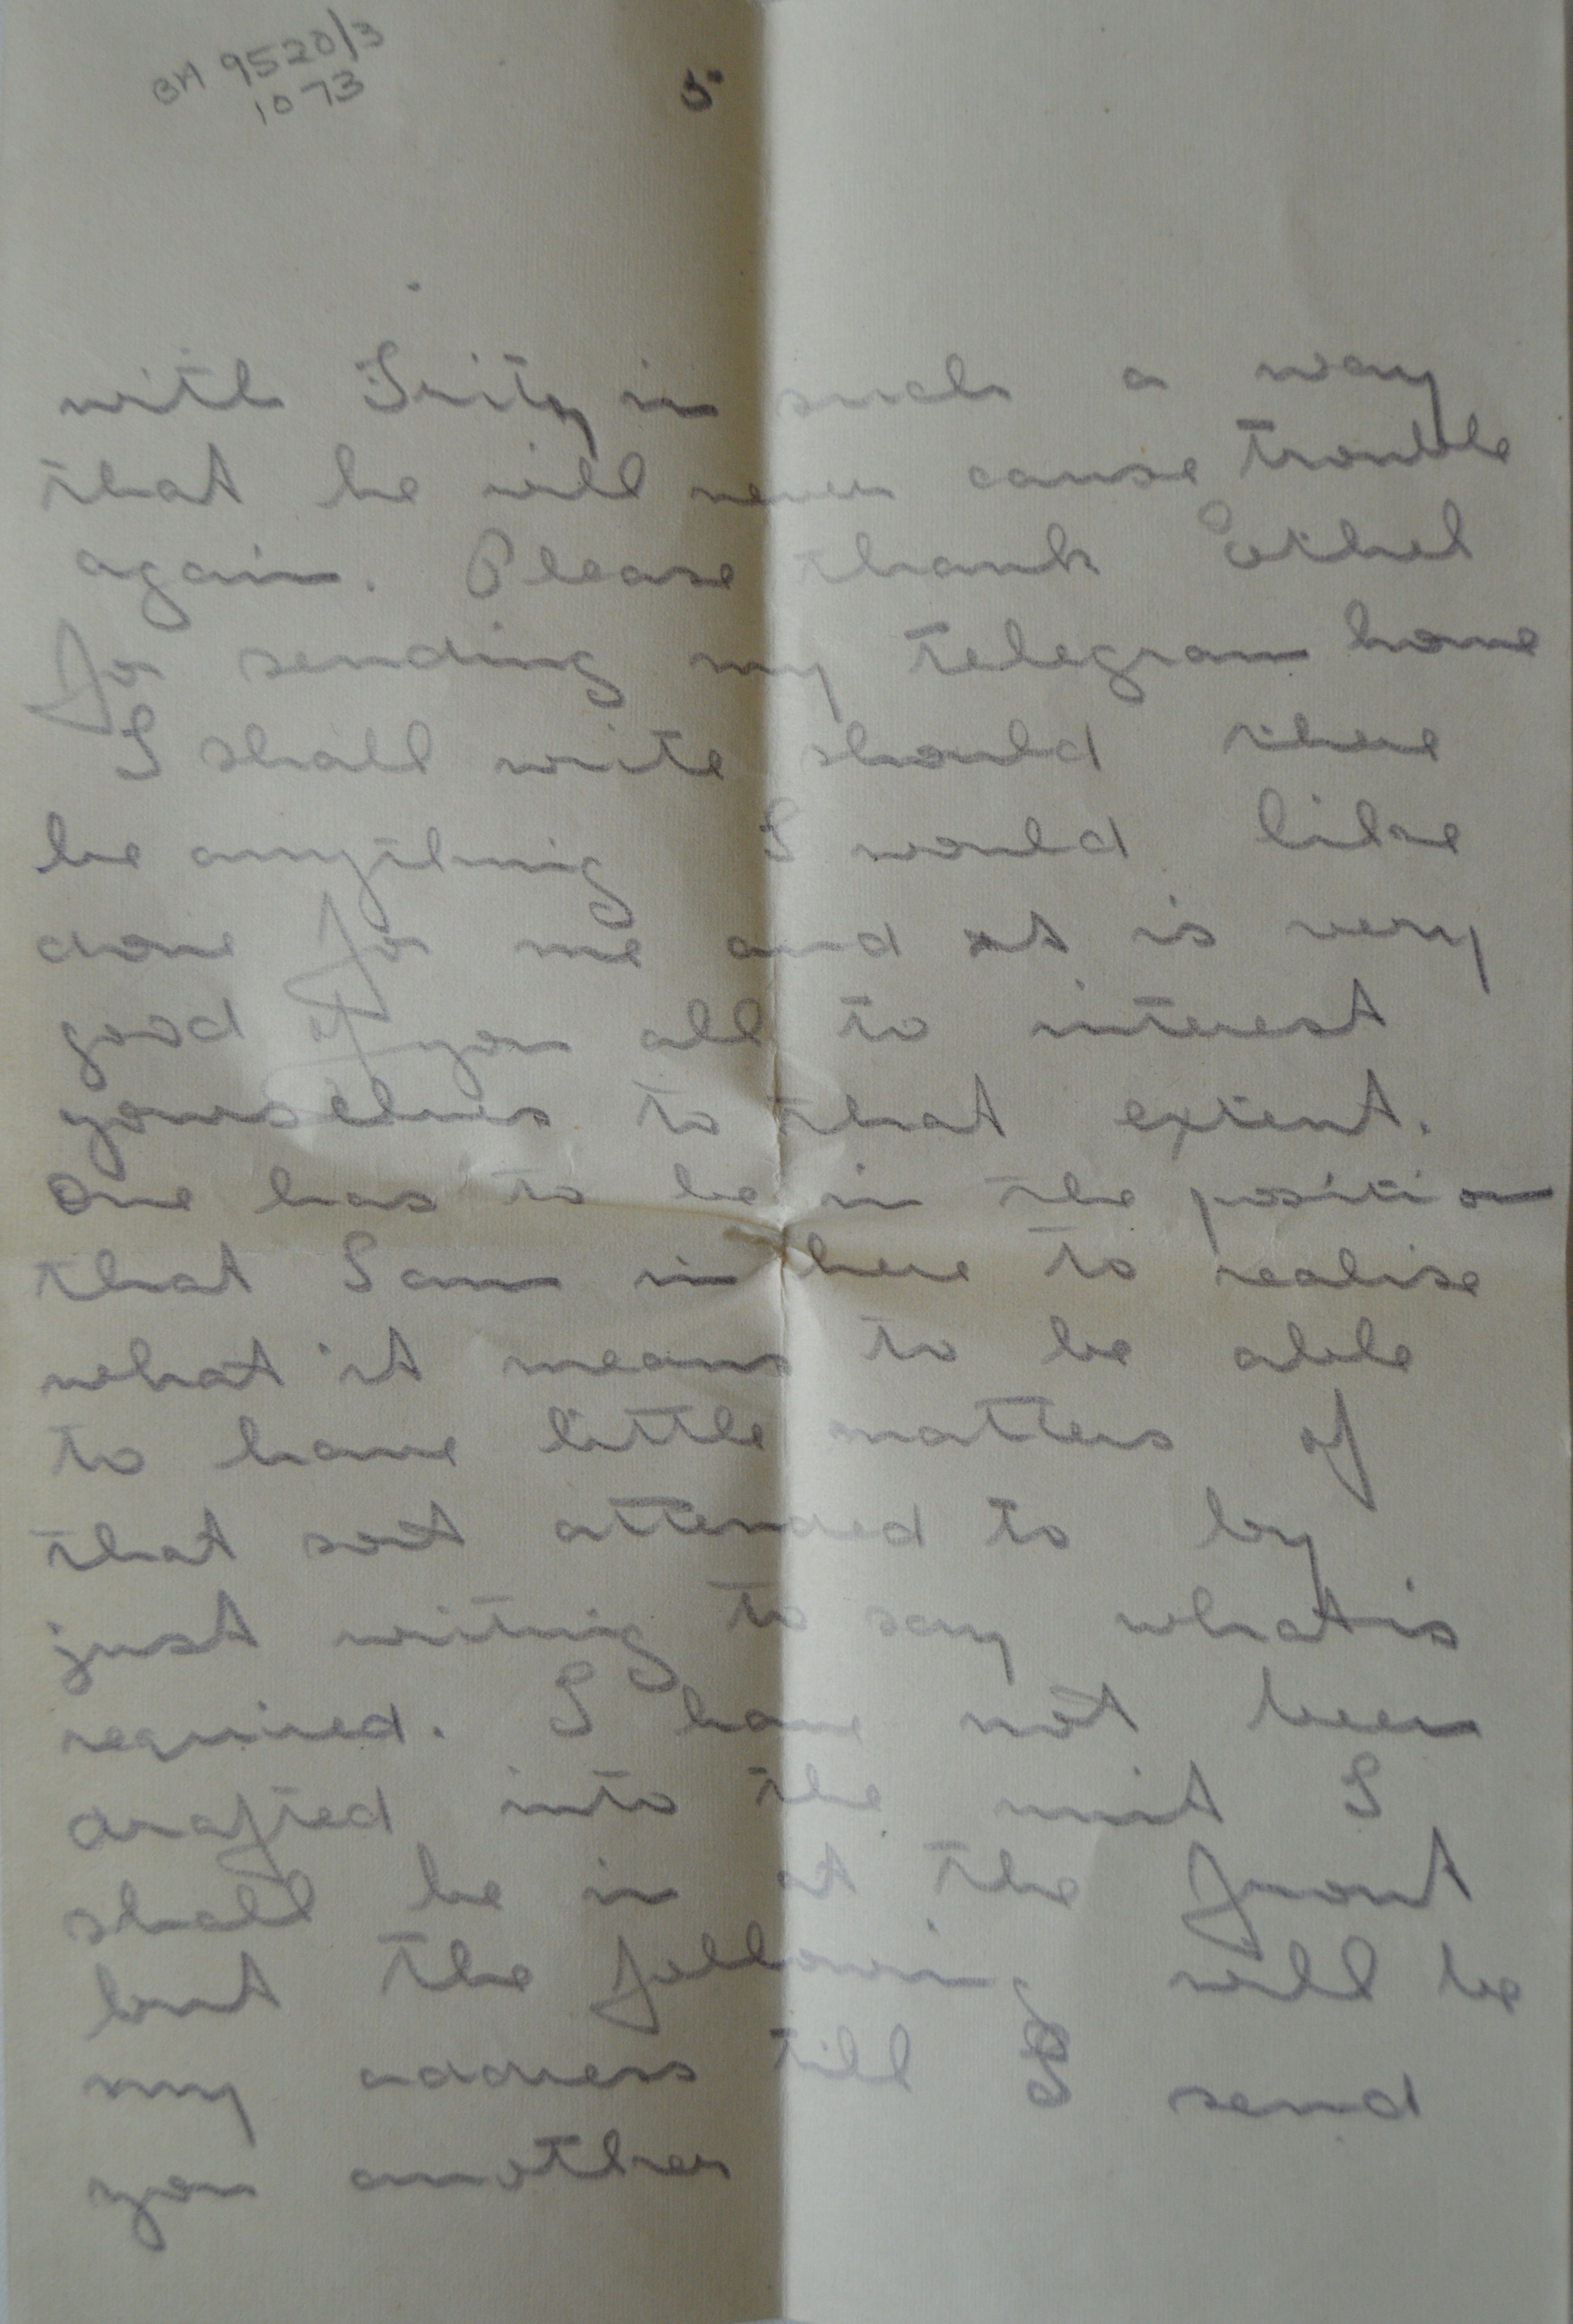 BH 9520/3
1073
5.
with Fritz in such a way
that he will never cause trouble
again. Please thank Ethel
for sending my telegram home
I shall write should there
be anything I would like
done for me and it is very
good of you all to interest
yourselves to that extent.
One has to be in the position
that I am in here to realise
what it means to be able
to have little matters of
that sort attended to by
just writing to say what is
required. I have not been
drafted into the unit I
shall be in at the front
but the following will be
my address till I send
you another